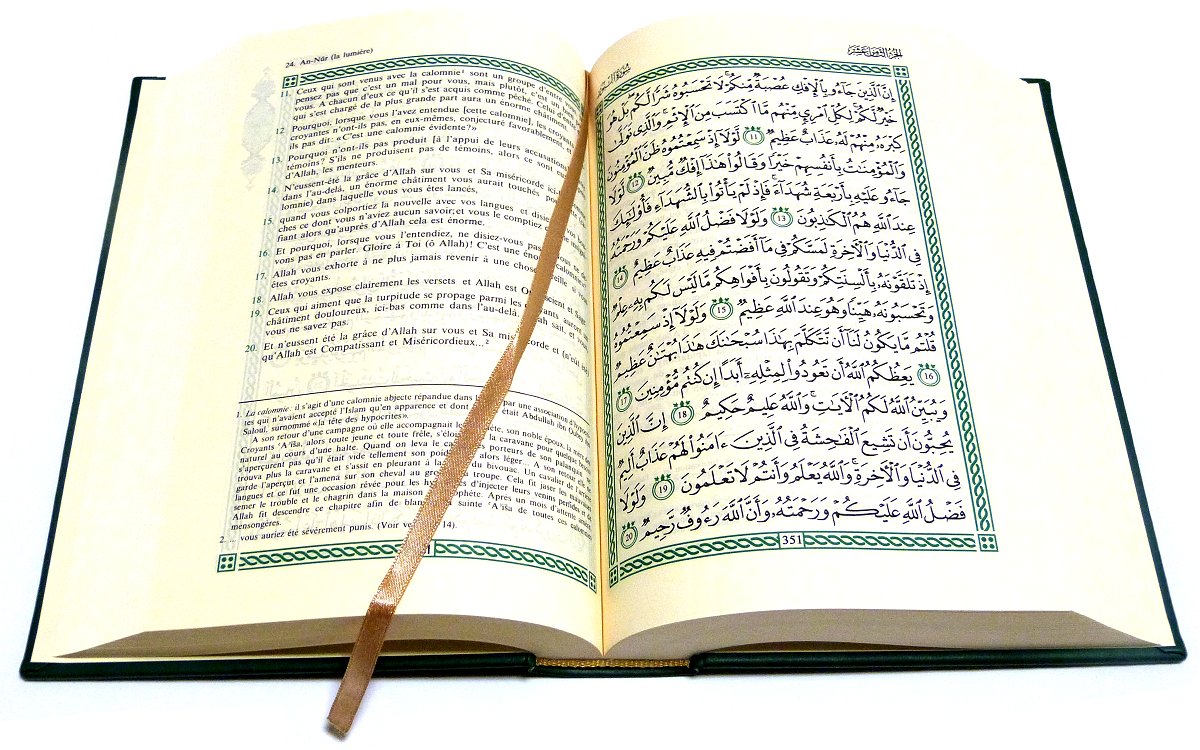 24. An-Nūr (la lumière)
11. Ceux qui sont venus avec la calomnie¹ sont un groupe d'entre
pensez pas que c'est un mal pour vous, mais plutôt, c'est un
vous. A chacun d'eux ce qu'il s'est acquis comme péché. Celui d'
qui s'est chargé de la plus grande part aura un énorme châtiment.
12 Pourquoi, lorsque vous l'avez entendue [cette calomnie], les
croyantes n'ont-ils pas, en eux-mêmes, conjecturé favorablement
ils pas dit: «C'est une calomnie évidente?»
13. Pourquoi n'ont-ils pas produit [à l'appui de leurs accusations]
témoins? S'ils ne produisent pas de témoins, alors ce sont eux
d'Allah, les menteurs.
14. N'eussent-été la grâce d'Allah sur vous et Sa miséricorde ici-
dans l'au-delà, un énorme châtiment vous aurait touchés pour
lomnie) dans laquelle vous vous êtes lancés,
15. quand vous colportiez la nouvelle avec vos langues et disiez
ches ce dont vous n'aviez aucun savoir; et vous le comptiez
fiant alors qu'auprès d'Allah cela est énorme.
16. Et pourquoi, lorsque vous l'entendiez, ne disiez-vous pas:
vons pas en parler. Gloire à Toi (ô Allah)! C'est une énorme calomnie
17. Allah vous exhorte à ne plus jamais revenir à une chose
êtes croyants.
18. Allah vous expose clairement les versets et Allah est Omniscient et Sage.
19. Ceux qui aiment que la turpitude se propage parmi les croyants auront
châtiment douloureux, ici-bas comme dans l'au-delà. Allah sait, et
vous ne savez pas.
20. Et n'eussent été la grâce d'Allah sur vous et Sa miséricorde et (n'eût été)
qu'Allah est Compatissant et Miséricordieux...²
1. La calomnie: il s'agit d'une calomnie abjecte répandue dans par une association d'hypocri-
tes qui n'avaient accepté l'Islam qu'en apparence et dont était Abdullah ibn Oubey ibn
Saloul, surnommé «la tête des hypocrites».
A son retour d'une campagne où elle accompagnait le Prophète, son noble époux, la mère des
Croyants 'A'iša, alors toute jeune et toute frêle, s'éloigna de la caravane pour quelque besoin
naturel au cours d'une halte. Quand on leva le camp, les porteurs de son palanquin ne
s'aperçurent pas qu'il était vide tellement son poids était léger... A son retour elle ne
trouva plus la caravane et s'assit en pleurant à la place du bivouac. Un cavalier de l'arrière
garde l'aperçut et l'amena sur son cheval au gros de la troupe. Cela fit jaser les mauvaises
langues et ce fut une occasion rêvée pour les hypocrites d'injecter leurs venins perfides et
semer le trouble et le chagrin dans la maison du Prophète. Après un mois d'attente
Allah fit descendre ce chapitre afin de blanchir la sainte 'A'iša de toutes ces calomnies
mensongères.
2. ... vous auriez été sévèrement punis. (Voir verset 14).
الجزء الثامن عشر
سورة النور
إِنَّ الَّذِينَ جَاءُو بِالْإِفْكِ عُصْبَةٌ مِّنكُمْ لَا تَحْسَبُوهُ شَرًّا لَّكُم بَلْ هُوَ
خَيْرٌ لَّكُمْ لِكُلِّ امْرِئٍ مِّنْهُم مَّا اكْتَسَبَ مِنَ الْإِثْمِ وَالَّذِي تَوَلَّىٰ
كِبْرَهُ مِنْهُمْ لَهُ عَذَابٌ عَظِيمٌ ⑪ لَّوْلَا إِذْ سَمِعْتُمُوهُ ظَنَّ الْمُؤْمِنُونَ
وَالْمُؤْمِنَاتُ بِأَنفُسِهِمْ خَيْرًا وَقَالُوا هَٰذَا إِفْكٌ مُّبِينٌ ⑫ لَّوْلَا
جَاءُو عَلَيْهِ بِأَرْبَعَةِ شُهَدَاءَ فَإِذْ لَمْ يَأْتُوا بِالشُّهَدَاءِ فَأُولَٰئِكَ
عِندَ اللَّهِ هُمُ الْكَاذِبُونَ ⑬ وَلَوْلَا فَضْلُ اللَّهِ عَلَيْكُمْ وَرَحْمَتُهُ
فِي الدُّنْيَا وَالْآخِرَةِ لَمَسَّكُمْ فِي مَا أَفَضْتُمْ فِيهِ عَذَابٌ عَظِيمٌ ⑭
إِذْ تَلَقَّوْنَهُ بِأَلْسِنَتِكُمْ وَتَقُولُونَ بِأَفْوَاهِكُم مَّا لَيْسَ لَكُم بِهِ عِلْمٌ
وَتَحْسَبُونَهُ هَيِّنًا وَهُوَ عِندَ اللَّهِ عَظِيمٌ ⑮ وَلَوْلَا إِذْ سَمِعْتُمُوهُ
قُلْتُم مَّا يَكُونُ لَنَا أَن نَّتَكَلَّمَ بِهَٰذَا سُبْحَانَكَ هَٰذَا بُهْتَانٌ عَظِيمٌ
⑯ يَعِظُكُمُ اللَّهُ أَن تَعُودُوا لِمِثْلِهِ أَبَدًا إِن كُنتُم مُّؤْمِنِينَ ⑰
وَيُبَيِّنُ اللَّهُ لَكُمُ الْآيَاتِ وَاللَّهُ عَلِيمٌ حَكِيمٌ ⑱ إِنَّ الَّذِينَ
يُحِبُّونَ أَن تَشِيعَ الْفَاحِشَةُ فِي الَّذِينَ ءَامَنُوا لَهُمْ عَذَابٌ أَلِيمٌ
فِي الدُّنْيَا وَالْآخِرَةِ وَاللَّهُ يَعْلَمُ وَأَنتُمْ لَا تَعْلَمُونَ ⑲ وَلَوْلَا
فَضْلُ اللَّهِ عَلَيْكُمْ وَرَحْمَتُهُ وَأَنَّ اللَّهَ رَءُوفٌ رَّحِيمٌ ⑳
351